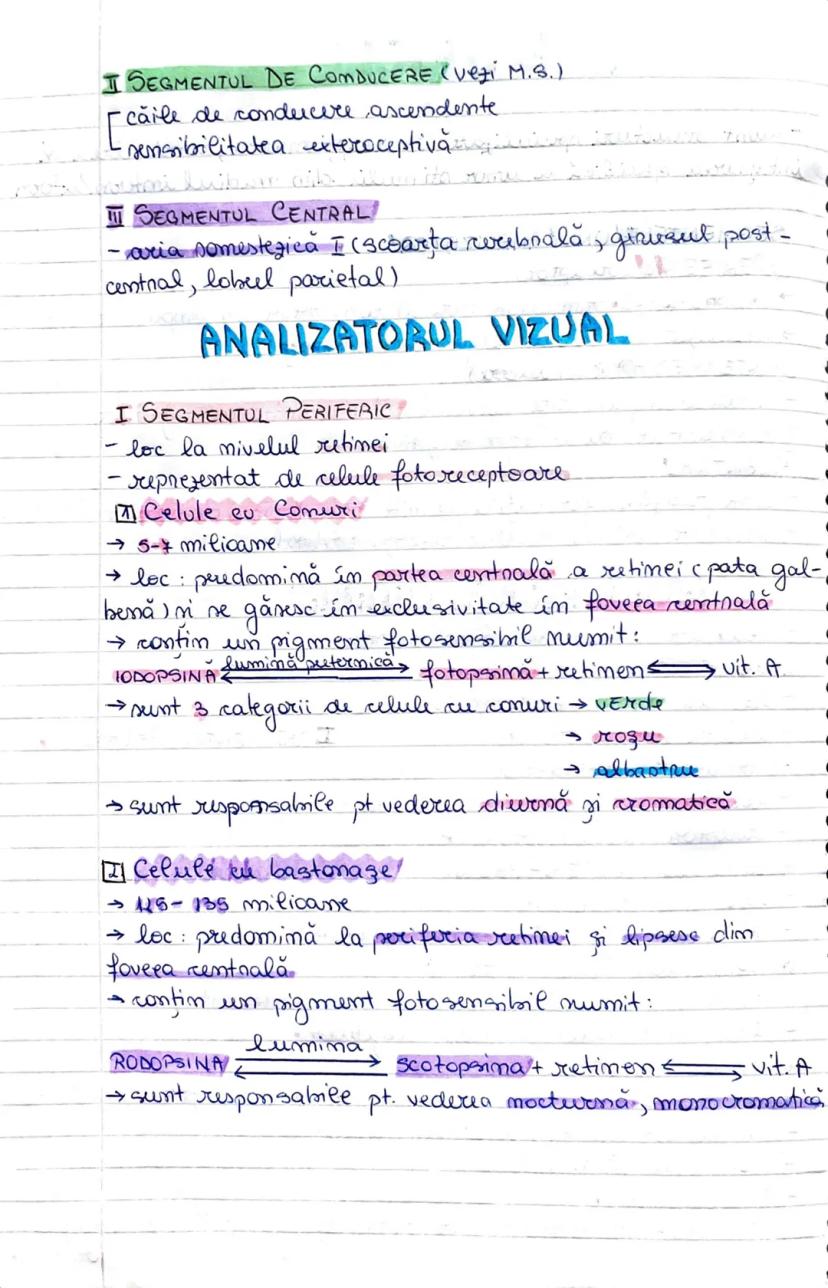 II SEGMENTUL DE CONDUCERE (vezi M.S.)
căile de conducere ascendente
sensibilitatea exteroceptivă
III SEGMENTUL CENTRAL
- aria somestezică I (scoarța cerebrală, girusul post-
central, lobul parietal)
ANALIZATORUL VIZUAL
I SEGMENTUL PERIFERIC
- loc la nivelul retinei
- reprezentat de celule fotoreceptoare
1 Celule cu Conuri
→ 5-7 milioane
→ loc: predomină în partea centrală a retinei (pata gal-
benă) și se găsesc în exclusivitate în foveea centrală
→ conțin un pigment fotosensibil numit:
IODOPSINĂ lumină puternică fotopsină + retinen ⇌ vit. A
→ sunt 3 categorii de celule cu conuri → verde
→ roșu
→ albastru
→ sunt responsabile pt vederea diurnă și cromatică
2 Celule cu bastonașe
→ 125-135 milioane
→ loc: predomină la periferia retinei și lipsesc din
foveea centrală
→ conțin un pigment fotosensibil numit:
lumina
RODOPSINA ⇌ scotopsina + retinen ⇌ vit. A
→ sunt responsabile pt. vederea nocturnă, monocromatică